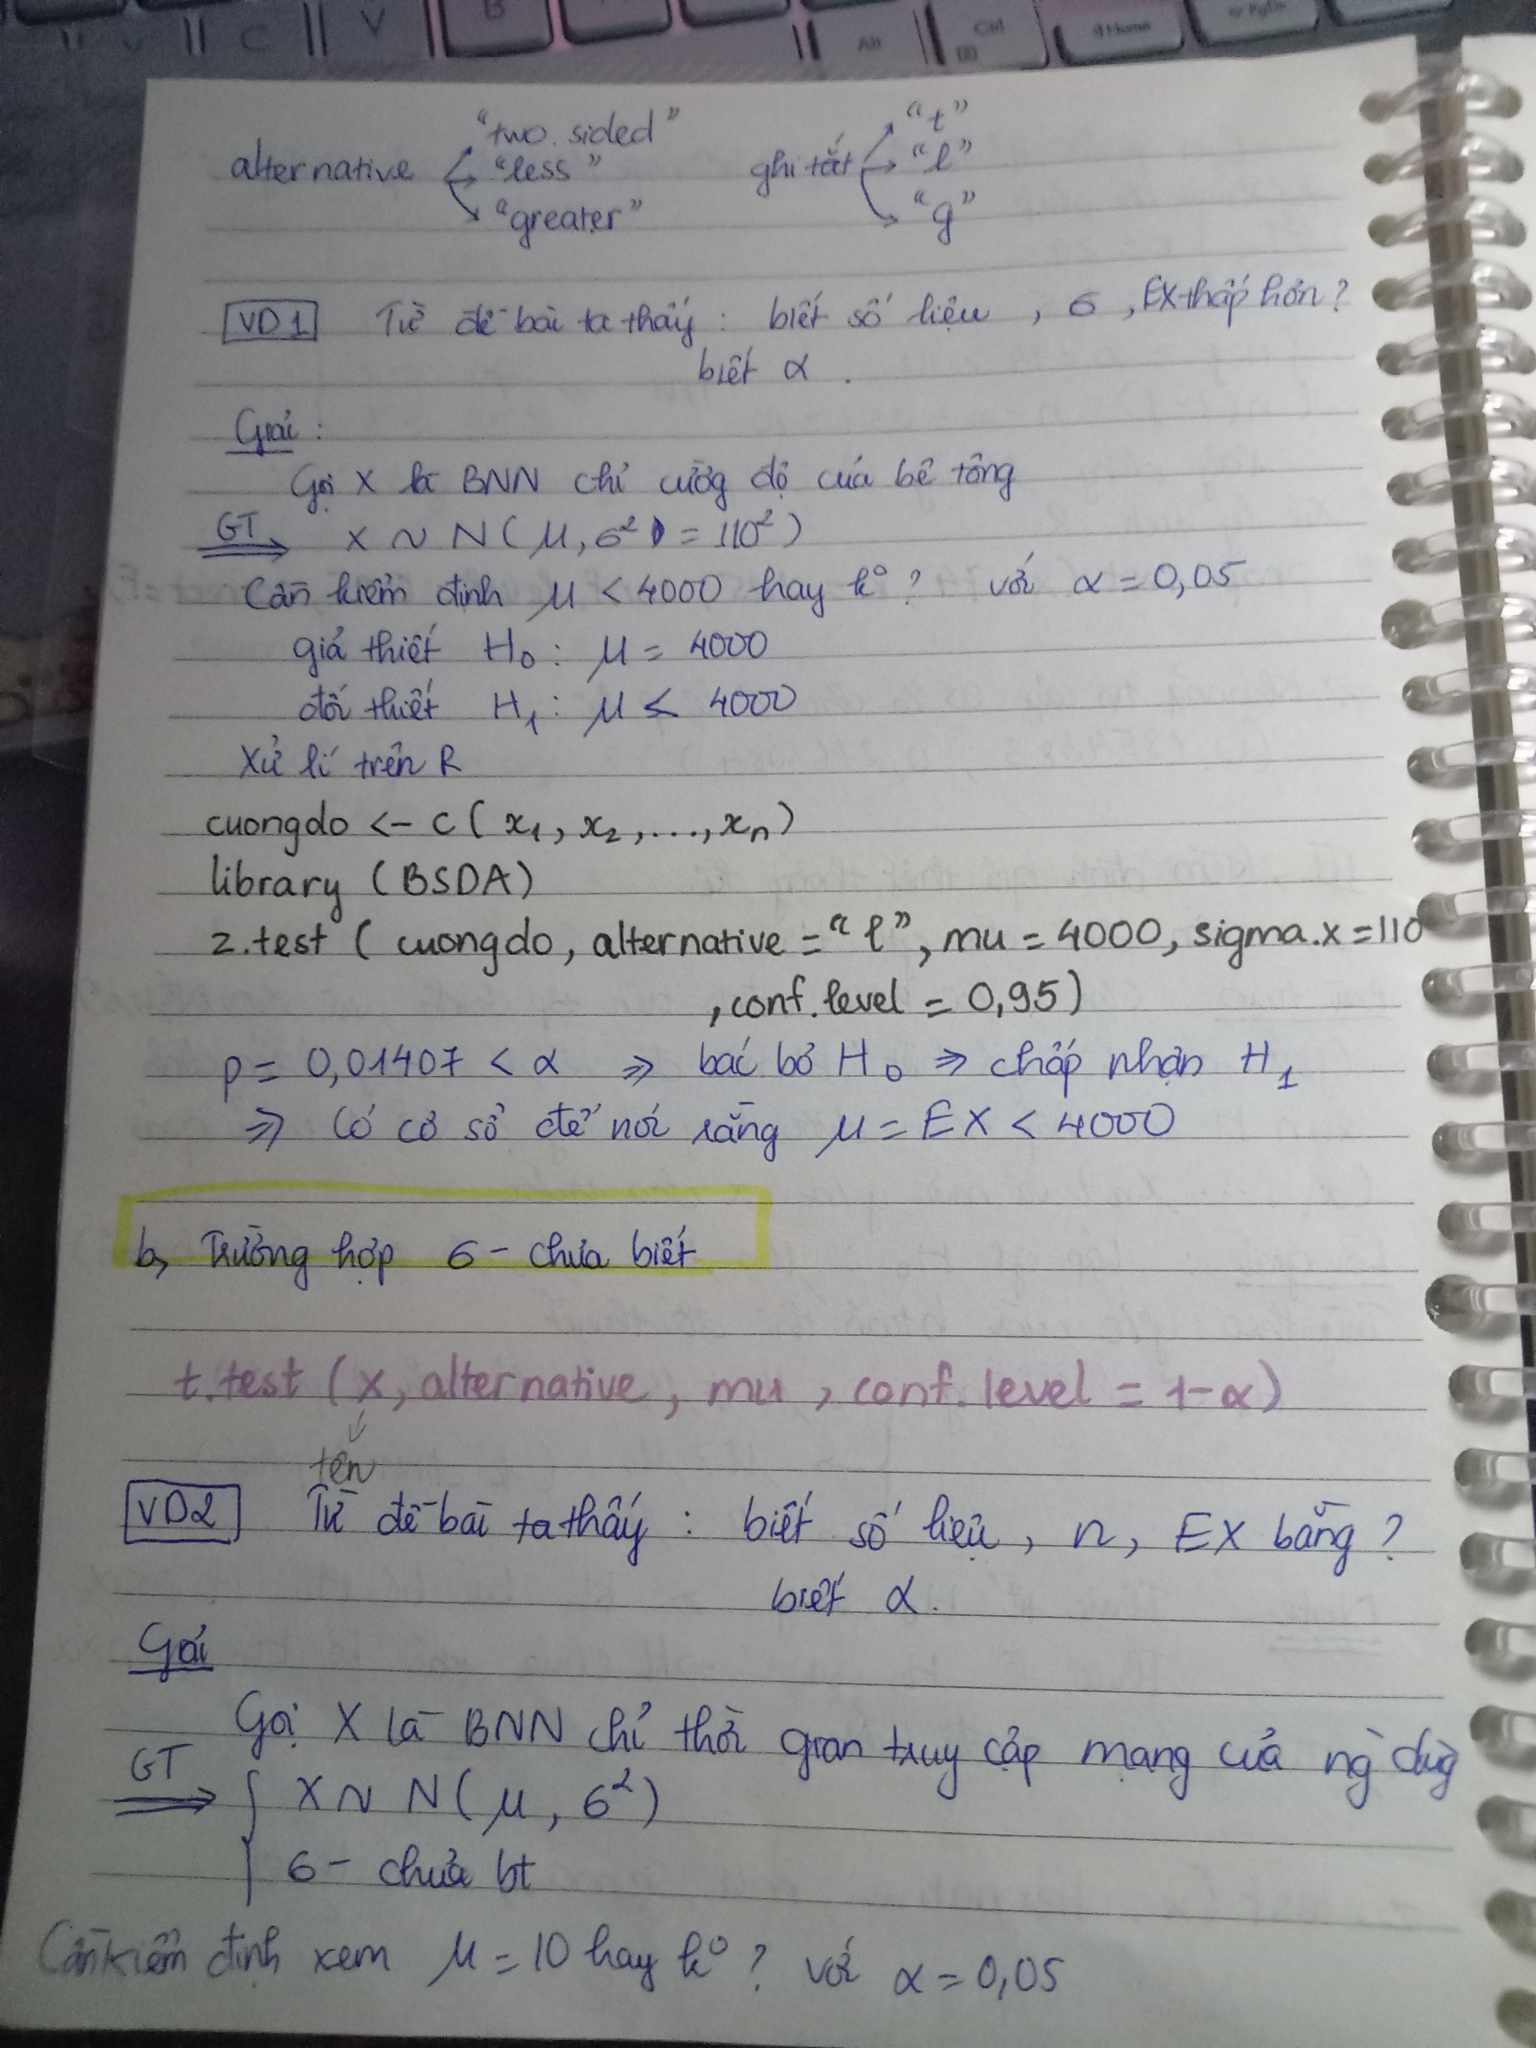 alternative "two.sided" "less" "greater" ghi tắt "t" "l" "g"
VD1 Từ đề bài ta thấy: biết số liệu, σ, EX thấp hơn?
biết α.
Giải:
Gọi X là BNN chỉ cường độ của bê tông
GT ⟹ X ~ N(μ, σ² = 110²)
Cần kiểm định μ < 4000 hay k°? với α = 0,05
giả thiết H₀: μ = 4000
đối thiết H₁: μ < 4000
Xử lí trên R
cuongdo <- c(x₁, x₂, ..., xₙ)
library (BSDA)
z.test ( cuongdo, alternative = "l", mu = 4000, sigma.x = 110
, conf.level = 0,95)
p = 0,01407 < α ⇒ bác bỏ H₀ ⇒ chấp nhận H₁
⇒ Có cơ sở để nói rằng μ = EX < 4000
b, Trường hợp σ - chưa biết
t.test (x, alternative, mu, conf.level = 1-α)
tên
VD2 Từ đề bài ta thấy: biết số liệu, n, EX bằng?
biết α.
Giải
Gọi X là BNN chỉ thời gian truy cập mạng của ng` dùng
GT ⟹ { X ~ N(μ, σ²)
σ - chưa bt
Cần kiểm định xem μ = 10 hay k°? với α = 0,05